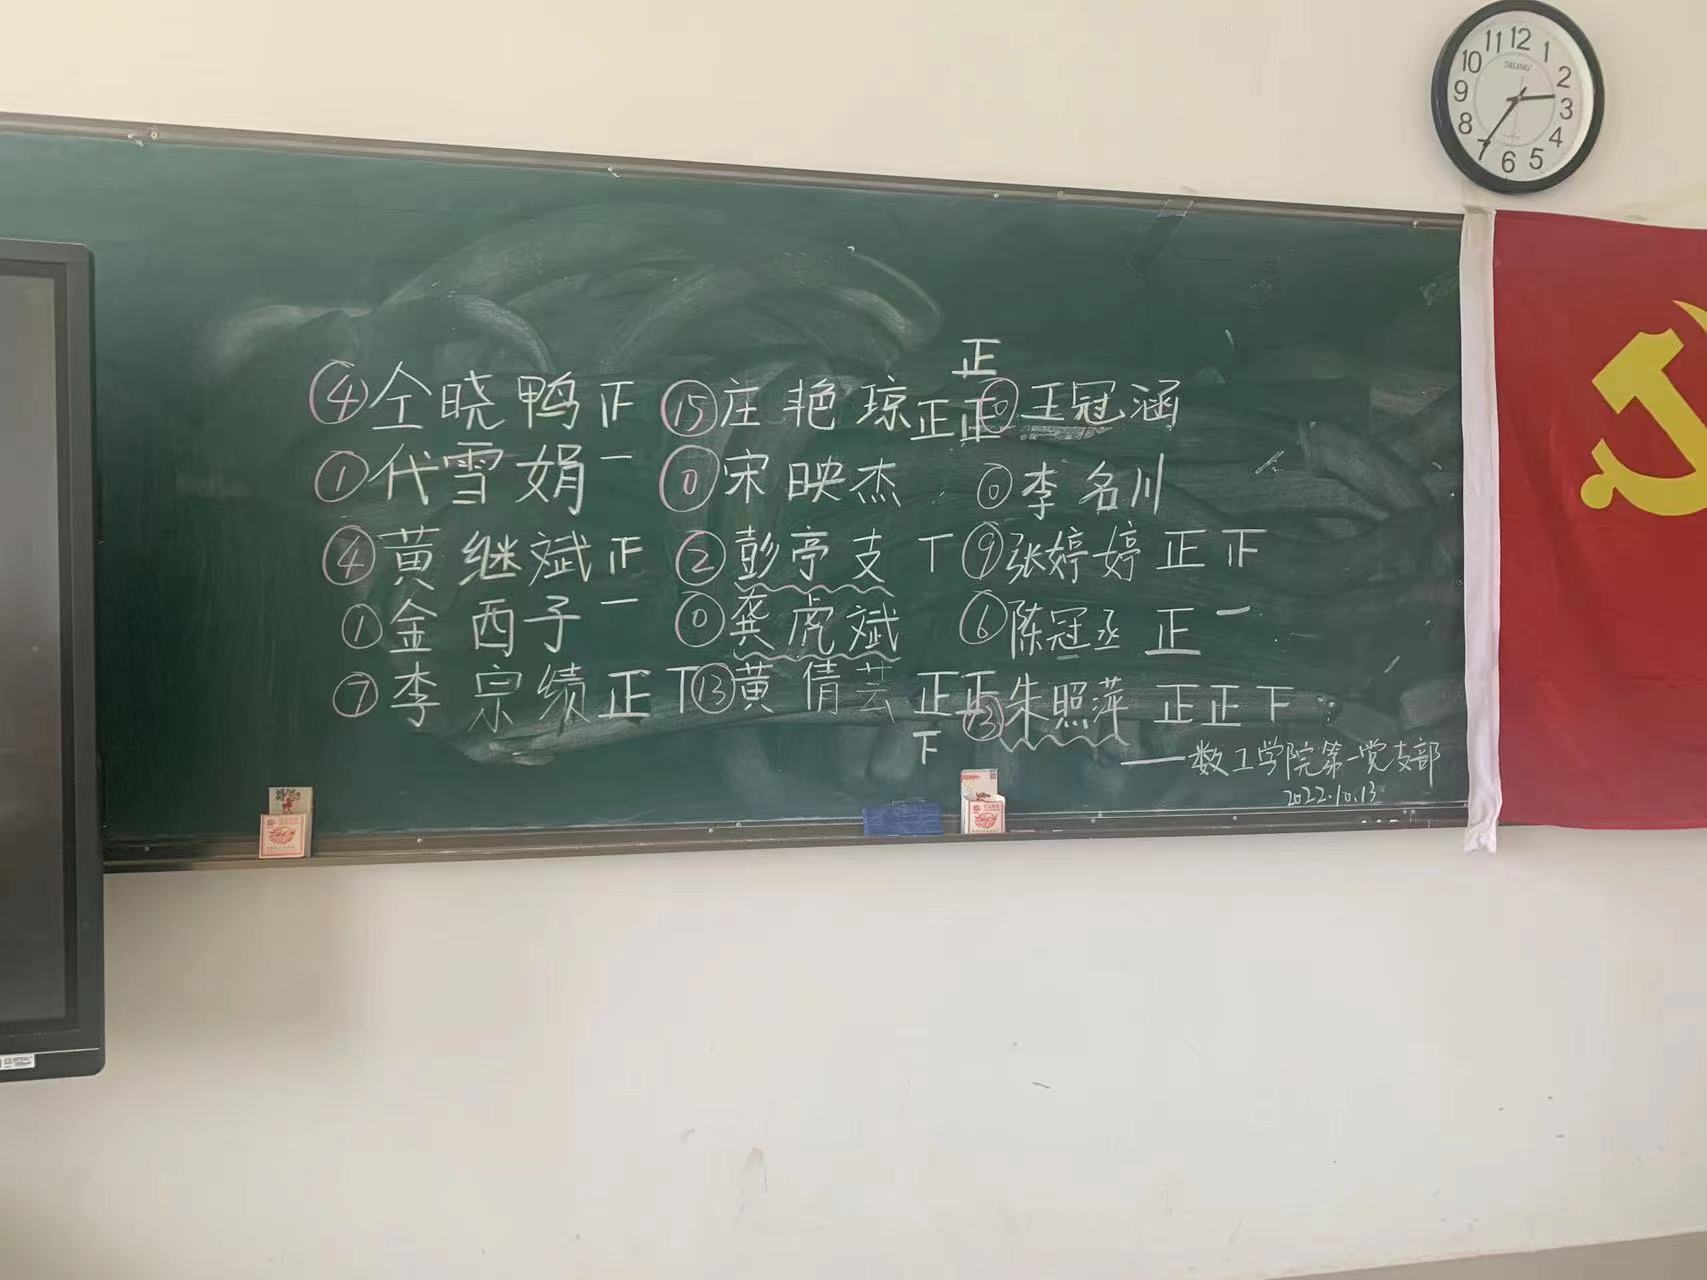 正
④仝晓鸭正 ⑮庄艳琼正正 ⓪王冠涵
①代雪娟一 ⓪宋映杰 ⓪李名川
④黄继斌正 ②彭亭支丅 ⑨张婷婷正正
①金西子一 ⓪龚虎斌 ⑥陈冠丞正一
⑦李宗绩正丅 ⑬黄倩芸正正 ⑬朱照萍正正下
下
——数工学院第一党支部
2022.10.13
11 12 1
10 2
9 3
8 4
7 6 5